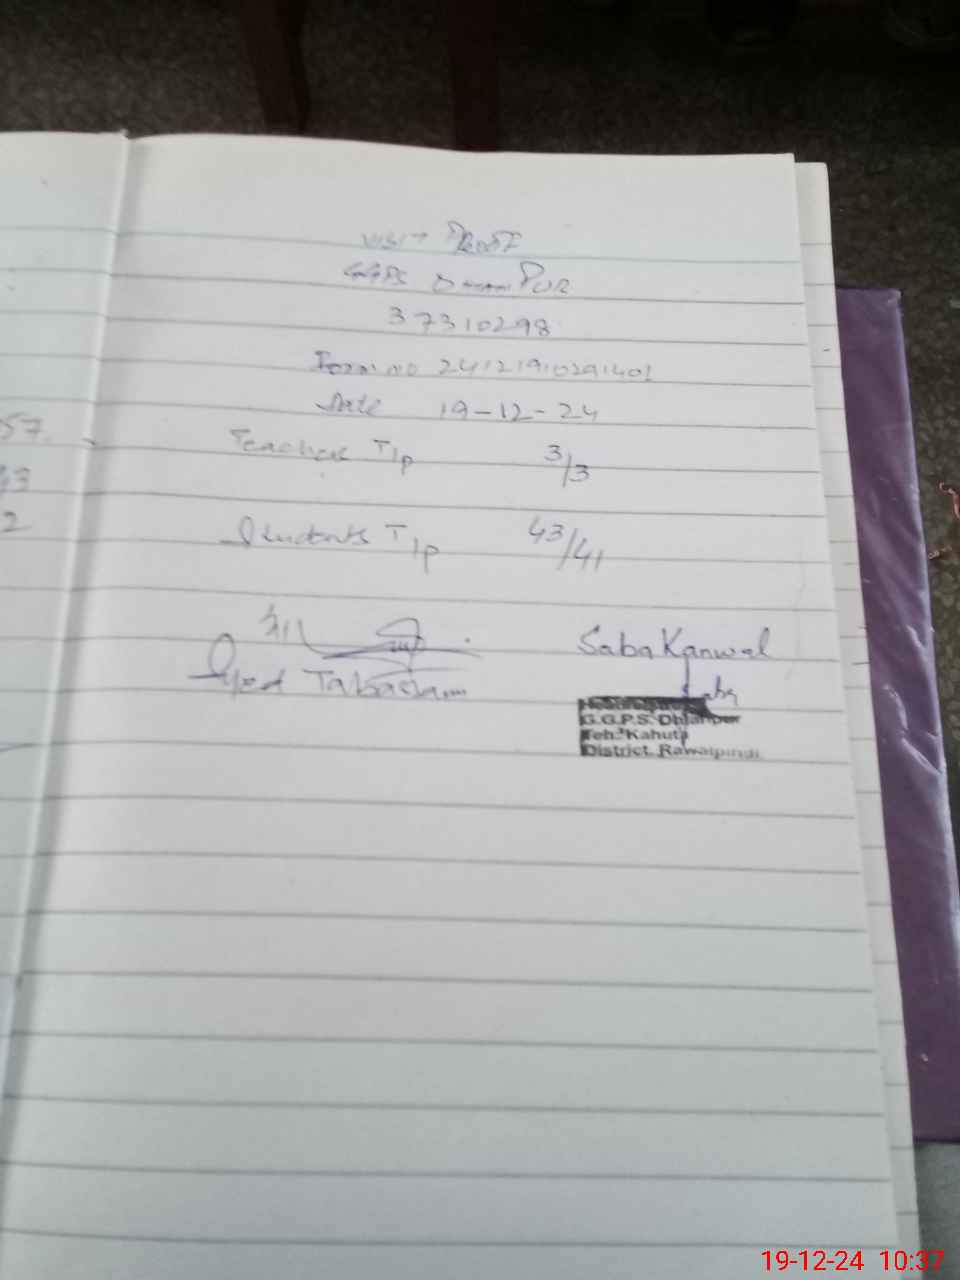 Visit Proof
GGPS Dhanpur
37310298
Form no 24121910291401
Date 19-12-24
Teachers T/p 3/3
57
43
Students T/p 43/41
2
Saba Kanwal
Syed Tabassam
Saba
G.G.P.S. Dhanpur
Teh: Kahuta
District. Rawalpindi
19-12-24 10:37